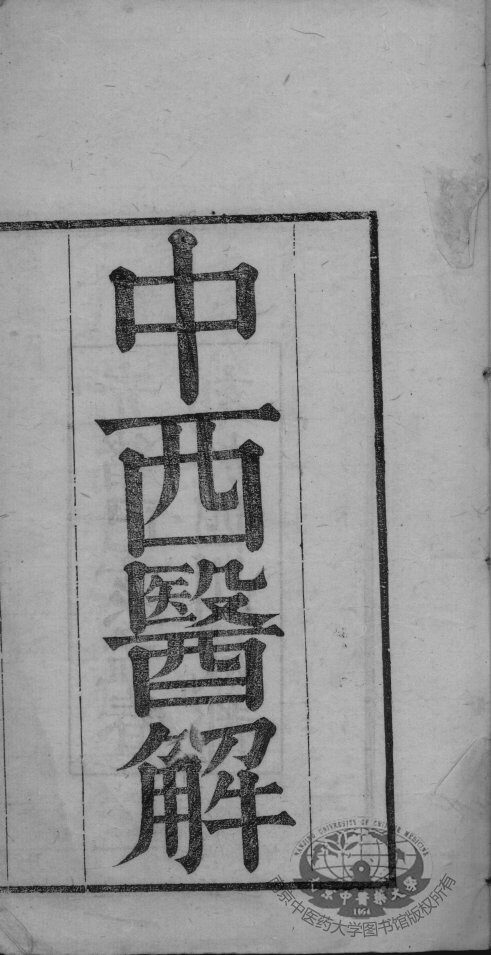 中西醫解
NANJING UNIVERSITY OF CHINESE MEDICINE
南京中醫藥大學
1954
南京中医药大学图书馆版权所有